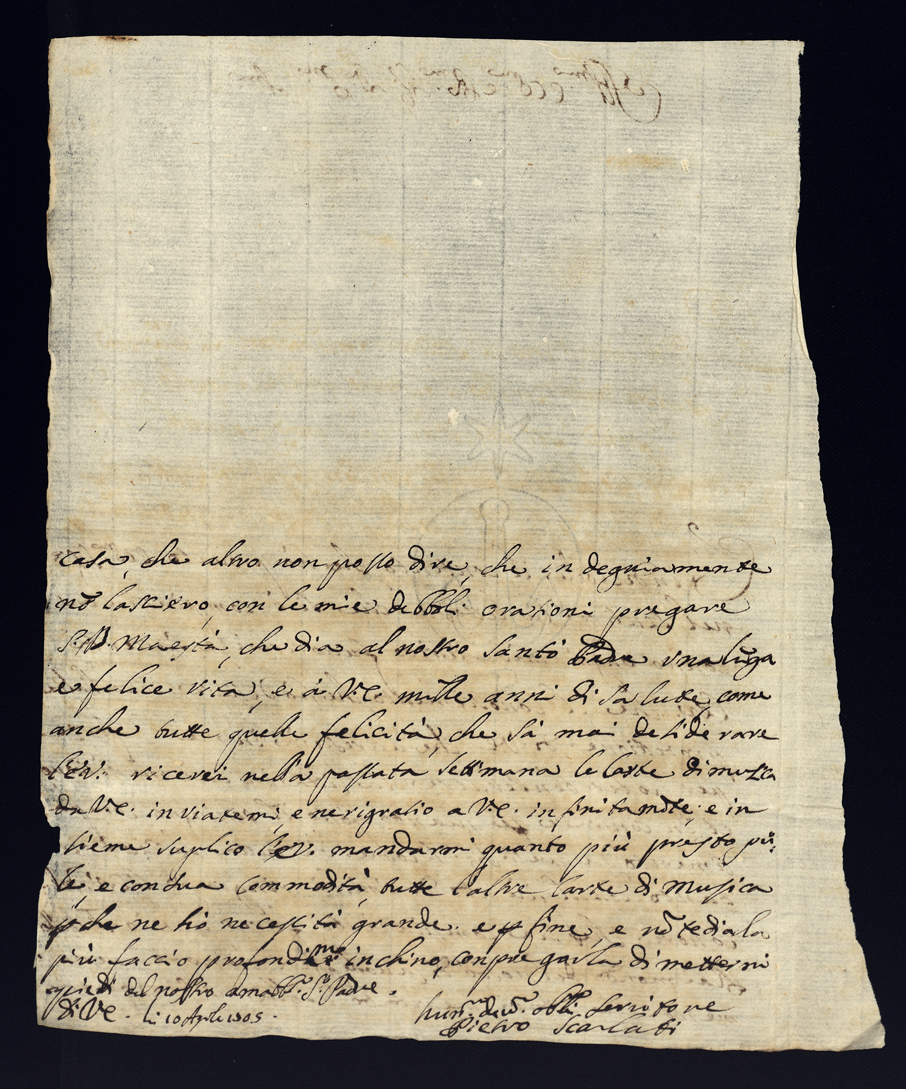 casa, che altro non posso dire, che in degniamente
nō lascierò, con le mie debbol: orationi pregare
S: D: Maestà, che dia al nostro santo Padre una lūga
e felice vita, e à V.E. mille anni di salute, come
anche tutte quelle felicità, che sà mai desiderare
l'E.V. ricevei nella passata settimana le carte di musica
da V.E. inviatemi, e ne rigratio a V.E. infinitamte. e in
sieme suplico l'E.V. mandarmi quanto più presto pū:
le, e con sua commodità tutte l'altre carte di musica
p che ne hò necessità grande. e p fine, e nō tediala
più faccio profondismo inchino, con pregarla di mettermi
a piedi del nostro amabb: Sto Padre.
di V.E. li 10 Aple 1705.
humo devo obblo servitore
Pietro Scarlati